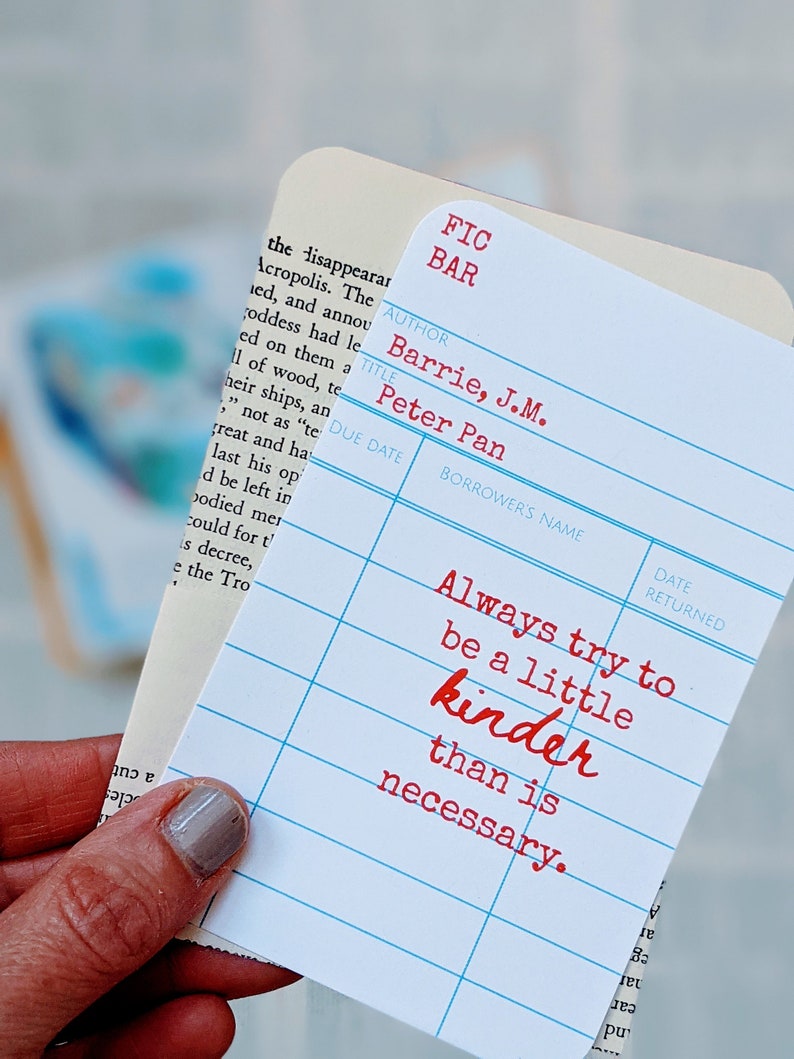 FIC
BAR
AUTHOR
Barrie, J.M.
TITLE
Peter Pan
DUE DATE
BORROWER'S NAME
DATE
RETURNED
Always try to
be a little
kinder
than is
necessary.
the disappearan
Acropolis. The
ned, and annou
goddess had le
ed on them a
ll of wood, te
heir ships, an
," not as "te
great and ha
last his op
d be left in
bodied mer
could for th
is decree,
e the Tro
a cut